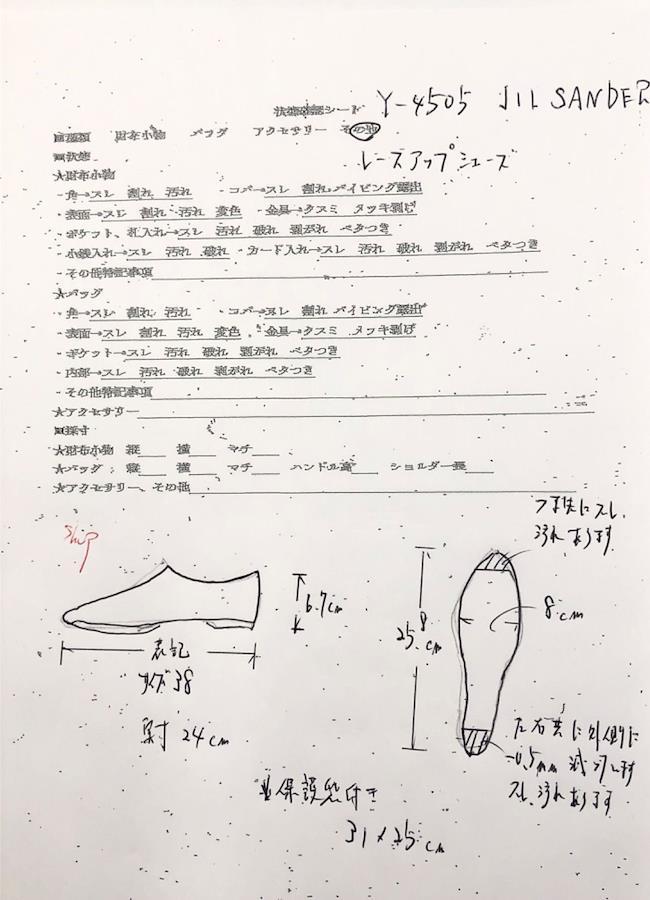 状態確認シート Y-4505 JIL SANDER
□種類 財布小物 バッグ アクセサリー その他
レースアップシューズ
□状態
★財布小物
・角→スレ 割れ 汚れ ・コバ→スレ 割れ パイピング露出
・表面→スレ 割れ 汚れ 変色 ・金具→クスミ メッキ剥げ
・ポケット、札入れ→スレ 汚れ 破れ 剥がれ ベタつき
・小銭入れ→スレ 汚れ 破れ ・カード入れ→スレ 汚れ 破れ 剥がれ ベタつき
・その他特記事項
★バッグ
・角→スレ 割れ 汚れ ・コバ→スレ 割れ パイピング露出
・表面→スレ 割れ 汚れ 変色 ・金具→クスミ メッキ剥げ
・ポケット→スレ 汚れ 破れ 剥がれ ベタつき
・内部→スレ 汚れ 破れ 剥がれ ベタつき
・その他特記事項
★アクセサリー
□採寸
★財布小物 縦 横 マチ
★バッグ 縦 横 マチ ハンドル高 ショルダー長
★アクセサリー、その他
つま先にスレ、
汚れあります
ship
6.7cm
25.8cm
8.cm
表記
サイズ38
実寸 24cm
左右共に外側に
-0.5mm 減っています
スレ、汚れあります
保護袋付き
31×25cm